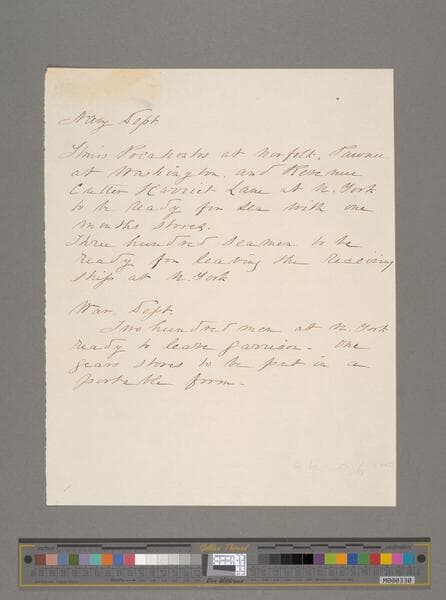 Navy Dept.
Pocahontas at Norfolk, Pawnee
at Washington, and Revenue
Cutter Harriet Lane at N. York
to be ready for sea with one
months stores.
Three hundred seamen to be
ready for leaving the receiving
ship at N. York
War, Dept
Two hundred men at N. York
ready to leave garrison - One
years stores to be put in a
portable form -
inches
Golden Thread
M000330